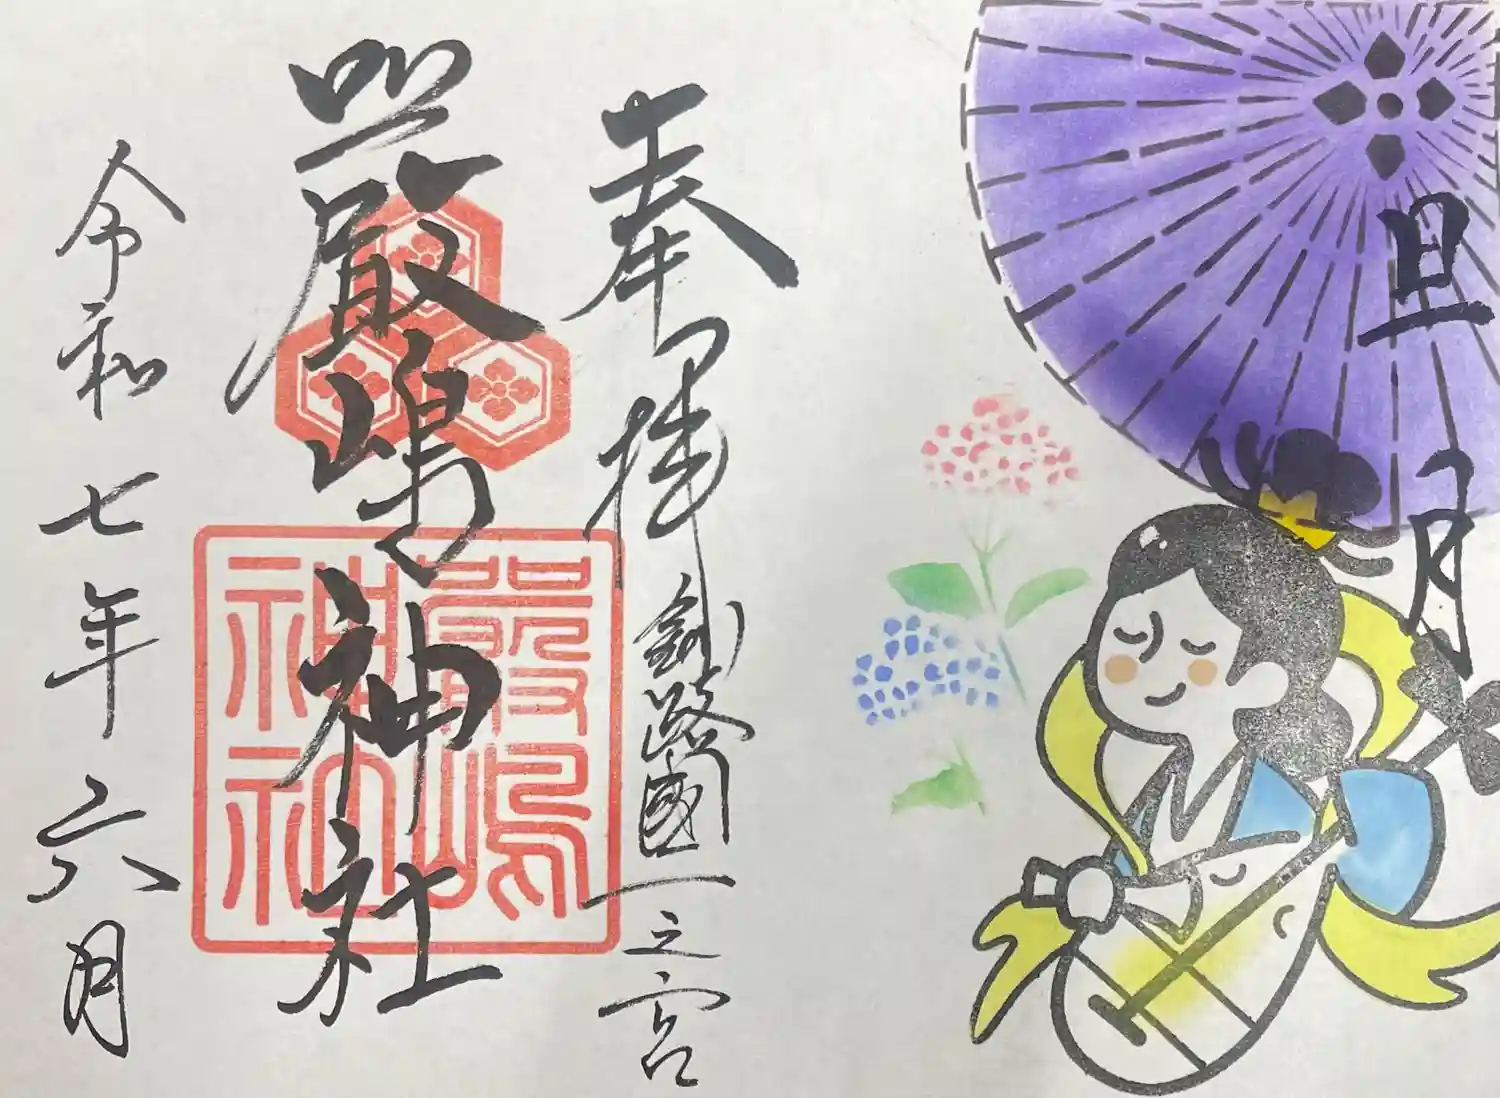 旦月
奉拝
釧路國一之宮
嚴嶋神社
嚴嶋神社
令和七年六月